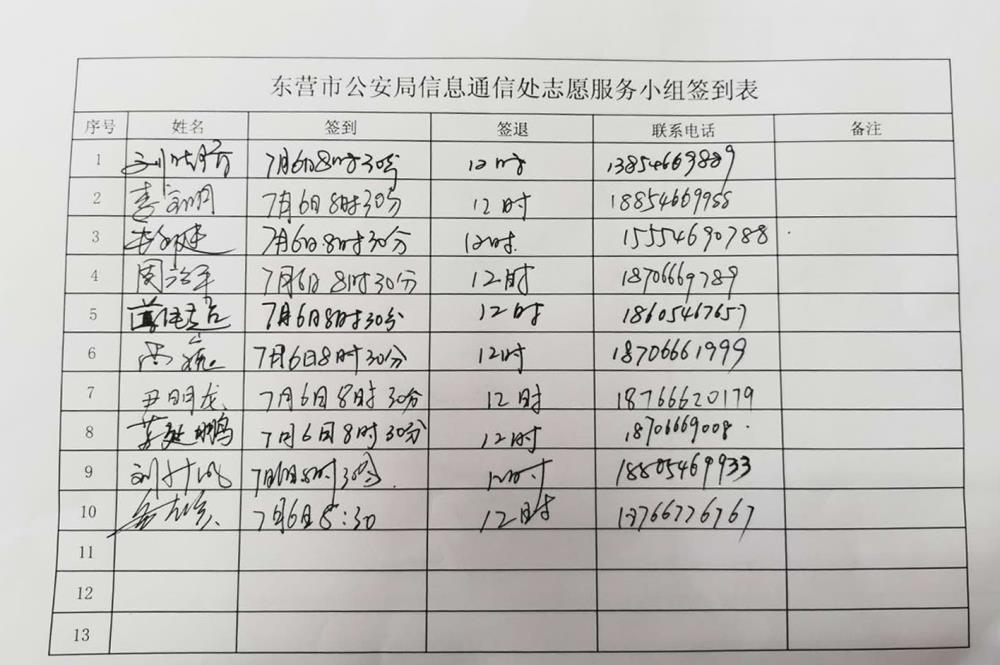 东营市公安局信息通信处志愿服务小组签到表
序号 姓名 签到 签退 联系电话 备注
1 7月6日8时30分 12时 13854669889
2 7月6日8时30分 12时 18854669988
3 7月6日8时30分 12时. 15554690788
4 周治军 7月6日8时30分 12时 18706669789
5 7月6日8时30分 12时 18605467657
6 7月6日8时30分 12时 18706661999
7 尹明龙 7月6日8时30分 12时 18766620179
8 7月6日8时30分 12时 18706669008.
9 7月6日8时30分. 12时 18805469933
10 7月6日8:30 12时 18766776767
11
12
13